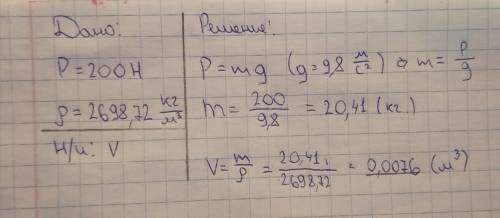 Дано:
P = 200 Н
ρ = 2698,72 кг/м³
Н/и: V
Решение:
P = mg (g = 9,8 м/с²) ⇒ m = P/g
m = 200/9,8 = 20,41 (кг)
V = m/ρ = 20,41/2698,72 = 0,0076 (м³)